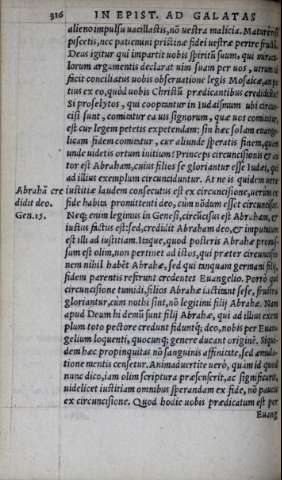 316 IN EPIST. AD GALATAS
alieno impulsu uacillastis, nõ uestra malicia. Maturè
piscetis, nec patiemini pristinæ fidei uestræ perire fructũ.
Deus igitur qui impartit uobis spiritũ suum, qui
lorum argumentis declarat uim suam per uos, utrum
facit conciliatus uobis obseruatione legis Mosaicæ, an
tius ex eo, quòd uobis Christũ prædicantibus credidistis?
Si proselytos, qui cooptantur in Iudaismum ubi circun
cisi sunt, comitatur ea uis signorum, quæ uos comitatur,
est cur legem petatis expetendam: sin hæc solam euange
licam fidem comitatur, cur aliunde speratis
unde uidetis ortum initium? Princeps circuncisionis &
tor est Abraham, cuius filios se gloriantur esse Iudæi, qui
ad illius exemplum circunciduntur. At ne is quidem uere
Abrahã cre iustitiæ laudem consecutus est ex circuncisione, uerùm ex
didit deo. fide habita promittenti deo, cùm nõdum esset circuncisus.
Gen. 15. Neq; enim legimus in Genesi, circũcisus est Abraham, &
iustus factus est: sed, credidit Abraham deo, & imputatum
est illi ad iustitiam. Itaque, quod posteris Abrahæ promis
sum est olim, non pertinet ad istos, qui præter circuncisio
nem nihil habẽt Abrahæ, sed qui
fidem parentis referunt credentes Euangelio. Porrò qui
circuncisione tumidi, filios Abrahæ iactitant sese, frustra
gloriantur, cùm nothi sint, nõ legitimi filij Abrahæ. Nam
apud Deum hi demũ sunt filij Abrahæ, qui ad illius exem
plum toto pectore credunt fiduntq; deo, nobis per Euan
gelium loquenti, quocunq; genere ducant originẽ. Siqui
dem hæc propinquitas nõ sanguinis affinitate, sed æmula
tione mentis censetur. Animaduertite uerò, quàm id quod
nunc dico, iam olim scriptura præsenserit, ac significarit,
uidelicet iustitiam omnibus sperandam ex fide, nõ paucis
ex circuncisione. Quod hodie uobis prædicatum est per
Euang